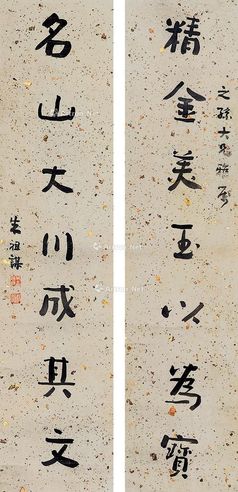 之孫大兄雅屬
精金美玉以為寶
名山大川成其文
朱祖謀